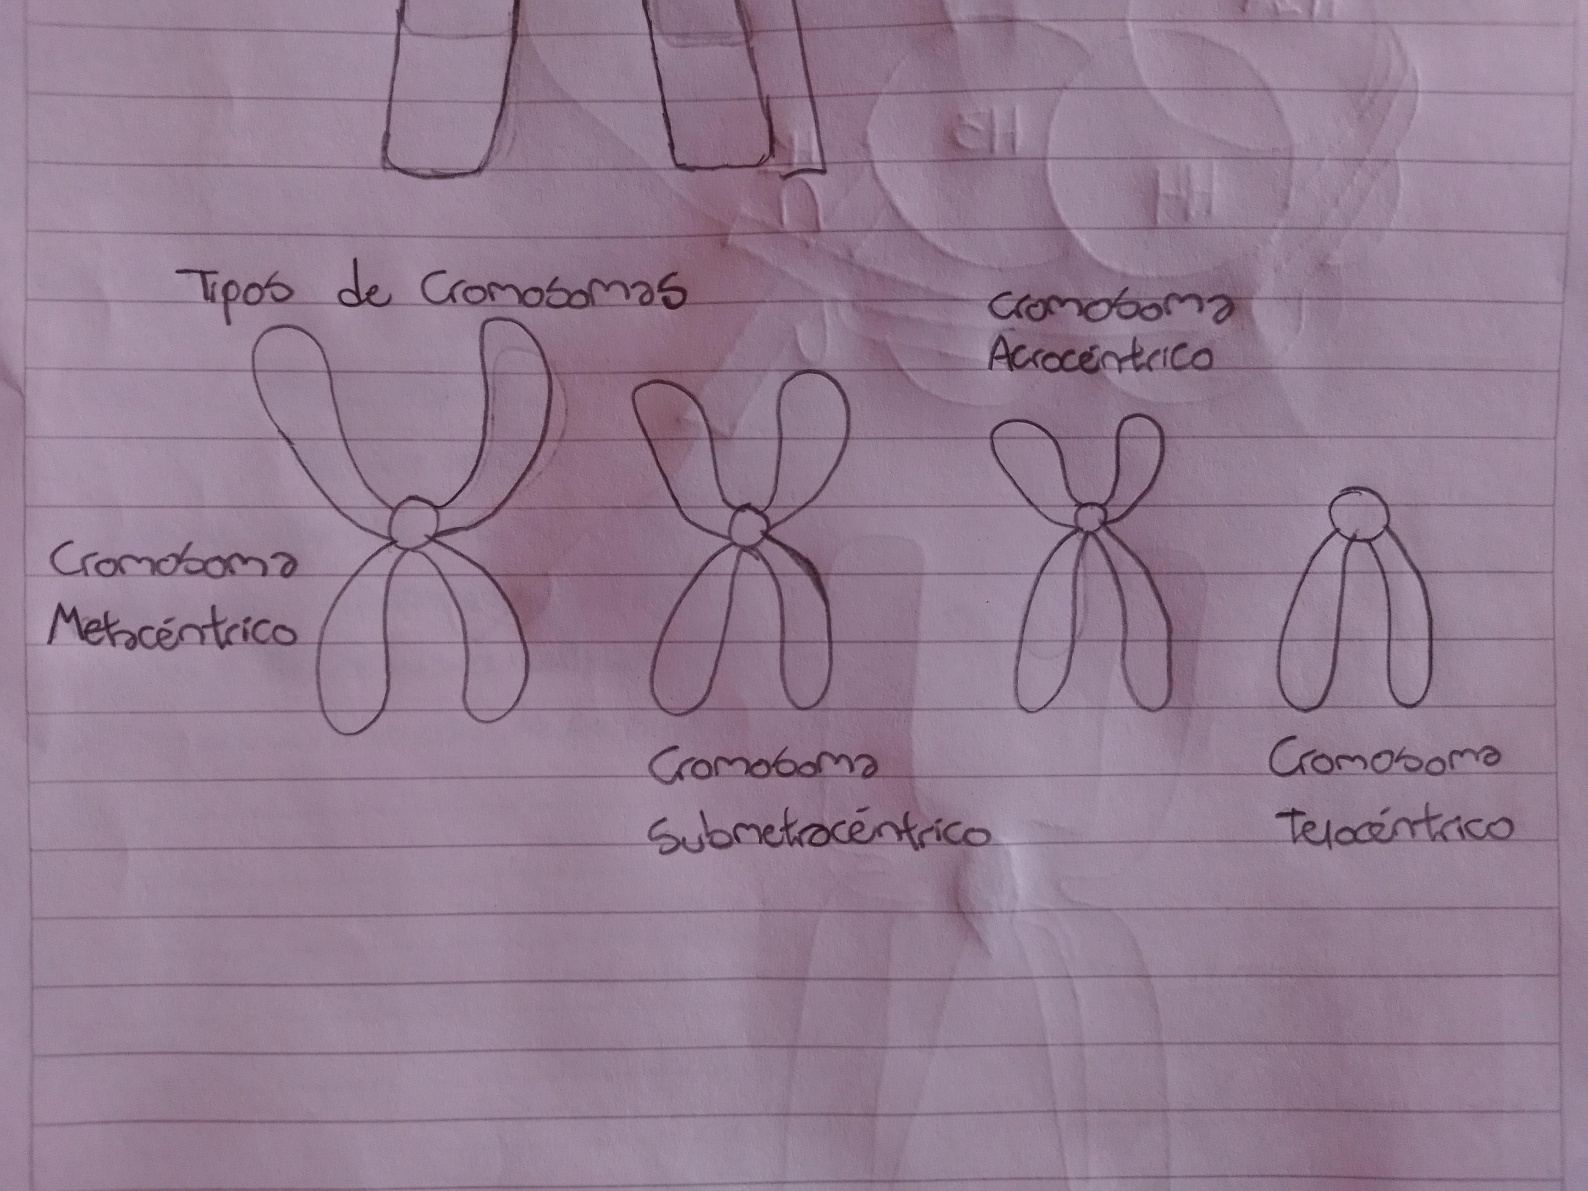 Tipos de Cromosomas
Cromosoma
Acrocéntrico
Cromosoma
Metacéntrico
Cromosoma
Submetracéntrico
Cromosoma
Telocéntrico